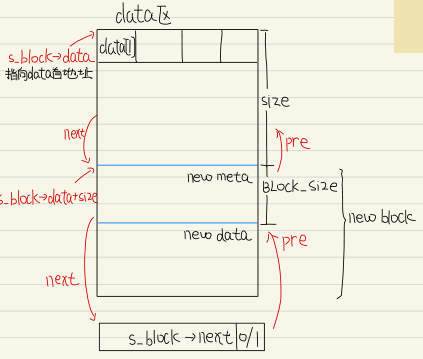 data区
s_block→data
指向data首地址
data[]
size
next
pre
new meta
BLock_size
s_block→data+size
new block
new data
pre
next
s_block→next 0/1